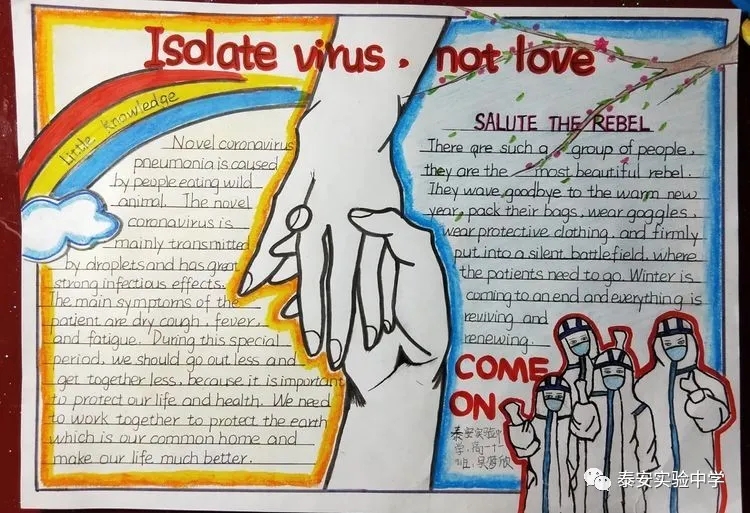 Isolate virus, not love
Little knowledge
Novel coronavirus
pneumonia is caused
by people eating wild
animal. The novel
coronavirus is
mainly transmitted
by droplets and has great
strong infectious effects.
The main symptoms of the
patient are dry cough, fever,
and fatigue. During this special
period, we should go out less and
get together less, because it is important
to protect our life and health. We need
to work together to protect the earth
which is our common home and
make our life much better.
SALUTE THE REBEL
There are such a group of people,
they are the most beautiful rebel.
They wave goodbye to the warm new
year, pack their bags, wear goggles,
wear protective clothing, and firmly
put into a silent battlefield, where
the patients need to go. Winter is
coming to an end and everything is
reviving and
renewing.
COME
ON
泰安实验中
学,高一十一
班,吴梦欣
泰安实验中学